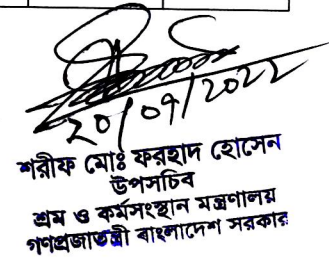 20/09/2022
শরীফ মোঃ ফরহাদ হোসেন
উপসচিব
শ্রম ও কর্মসংস্থান মন্ত্রণালয়
গণপ্রজাতন্ত্রী বাংলাদেশ সরকার